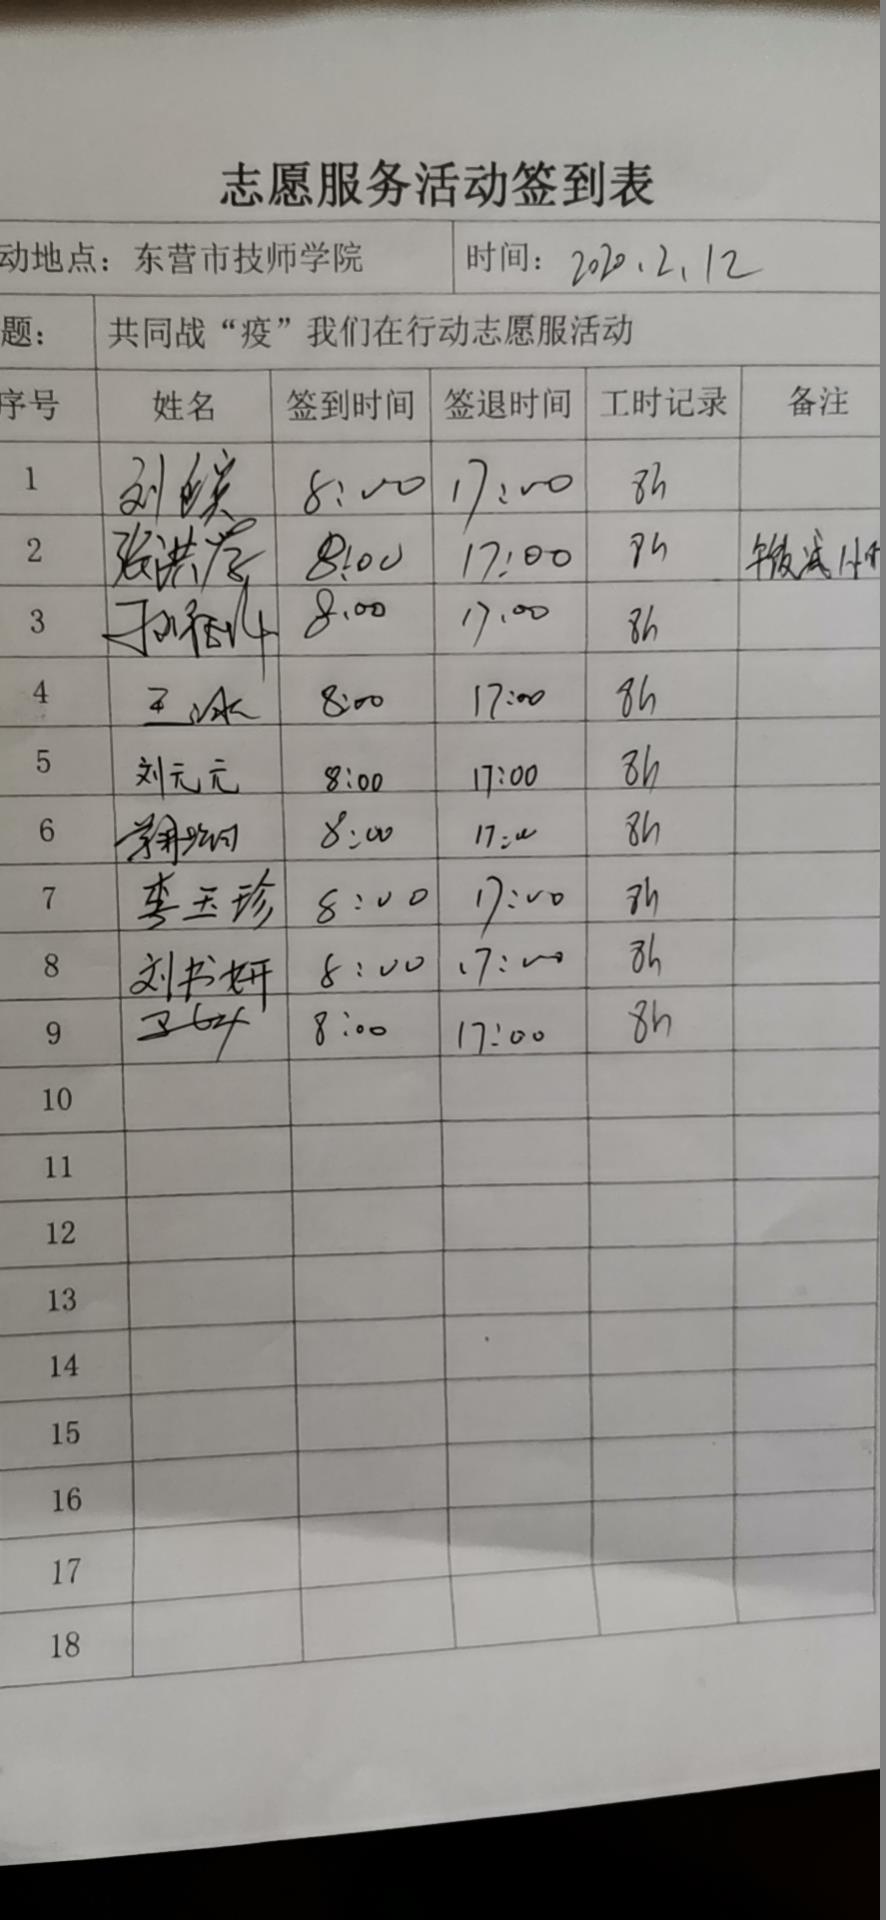 志愿服务活动签到表
动地点：东营市技师学院 时间：2020.2.12
题： 共同战“疫”我们在行动志愿服活动
序号 姓名 签到时间 签退时间 工时记录 备注
1 刘 8:00 17:00 8h
2 张洪 8:00 17:00 8h 午饭减1小时
3 8:00 17:00 8h
4 王冰 8:00 17:00 8h
5 刘元元 8:00 17:00 8h
6 8:00 17:00 8h
7 李玉珍 8:00 17:00 8h
8 刘书妍 8:00 17:00 8h
9 8:00 17:00 8h
10
11
12
13
14
15
16
17
18